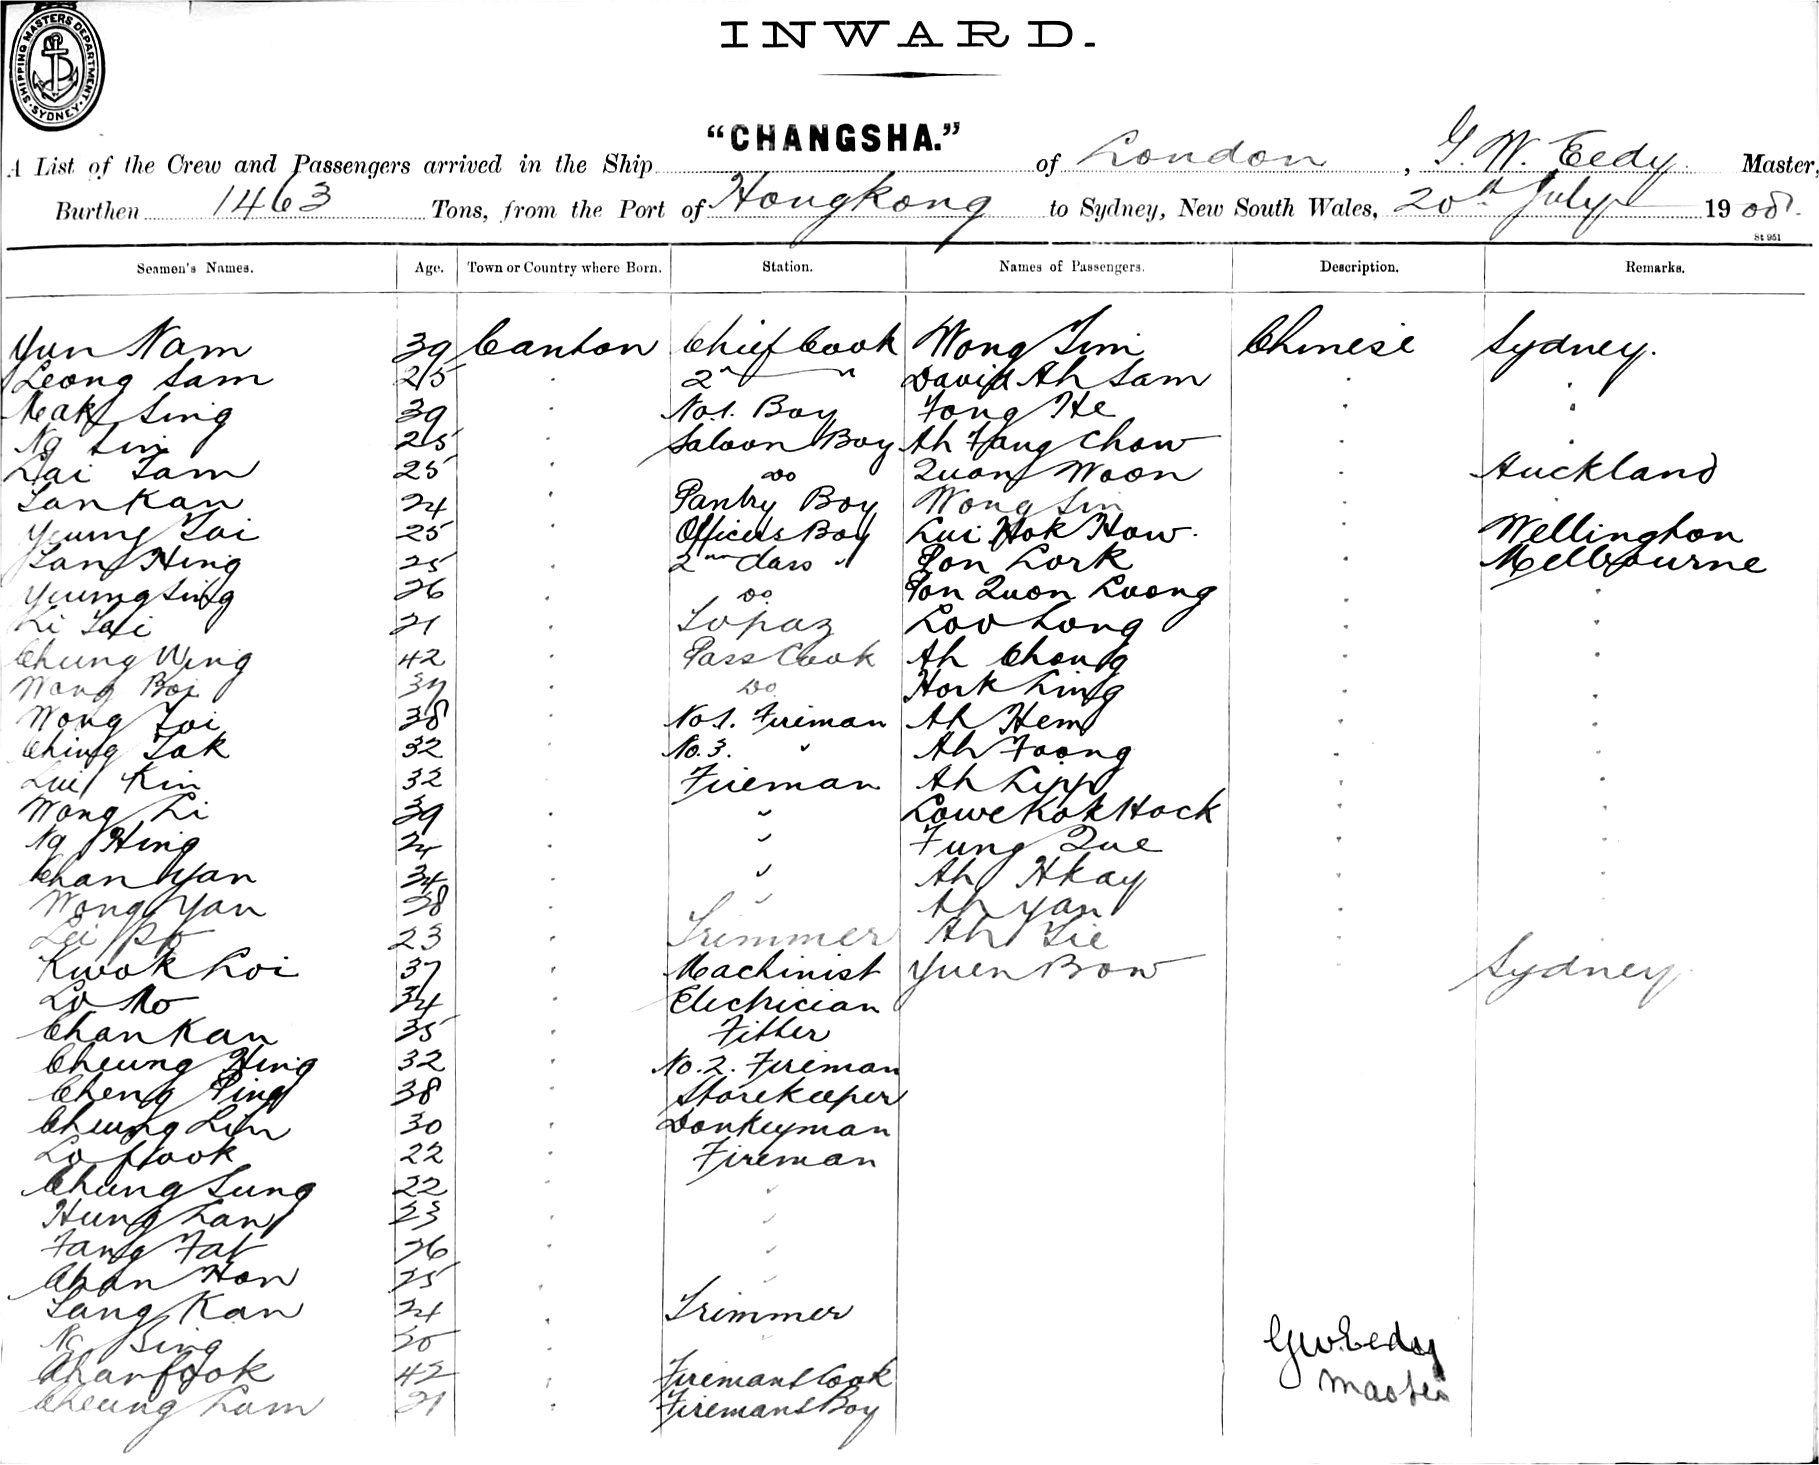 SHIPPING MASTERS DEPARTMENT. SYDNEY
INWARD.
A List of the Crew and Passengers arrived in the Ship "CHANGSHA." of London, G. W. Eedy Master,
Burthen 1463 Tons, from the Port of Hongkong to Sydney, New South Wales, 20th July 1908.
St 951
Seamen's Names. Age. Town or Country where Born. Station. Names of Passengers. Description. Remarks.
Yun Nam 39 Canton Chief Cook Wong Tim Chinese Sydney.
Leong Sam 25 " 2nd " David Ah Sam " "
Mak Sing 39 " No.1. Boy Fong He " "
Ng Sin 25 " Saloon Boy Ah Fang Chow " "
Lai Tam 25 " Do Quon Woon " Auckland
San Kan 24 " Pantry Boy Wong Sin "
Yeung Tai 25 " Officers Boy Lui Hok How. " Wellington
San Hing 25 " 2nd Class " Pon Lork " Melbourne
Yeung Sing 26 " Do Pon Quon Luong " "
Li Tai 21 " Topaz Loo Long " "
Chung Wing 42 " Pass Cook Ah Chong " "
Wong Boi 37 " Do Hork Ling " "
Wong Toi 38 " No1. Fireman Ah Hem " "
Ching Tak 32 " No.3. " Ah Foong " "
Lui Kin 32 " Fireman Ah Lipp " "
Wong Li 39 " " Lowe Kok Hock " "
Ng Hing 24 " " Fung Que " "
Chan Yan 34 " " Ah Hkay " "
Wong Yan 38 " " Ah Yan " "
Lei Po 23 " Trimmer Ah Tie "
Kwok Loi 37 " Machinist Yuen Bow " Sydney
Lo Mo 34 " Electrician
Chan Kan 35 " Fitter
Cheung Hing 32 " No.2. Fireman
Cheng Ping 38 " Storekeeper
Cheung Lin 30 " Donkeyman
Lo Fook 22 " Fireman
Chung Sung 22 " "
Hung Lan 23 " "
Fang Fat 26 " "
Chan Hon 25 " "
Tang Kan 24 " Trimmer
Ng Bing 30 " "
Chan Fook 42 " Firemans Cook
Cheung Lam 21 " Firemans Boy
G W. Eedy
Master